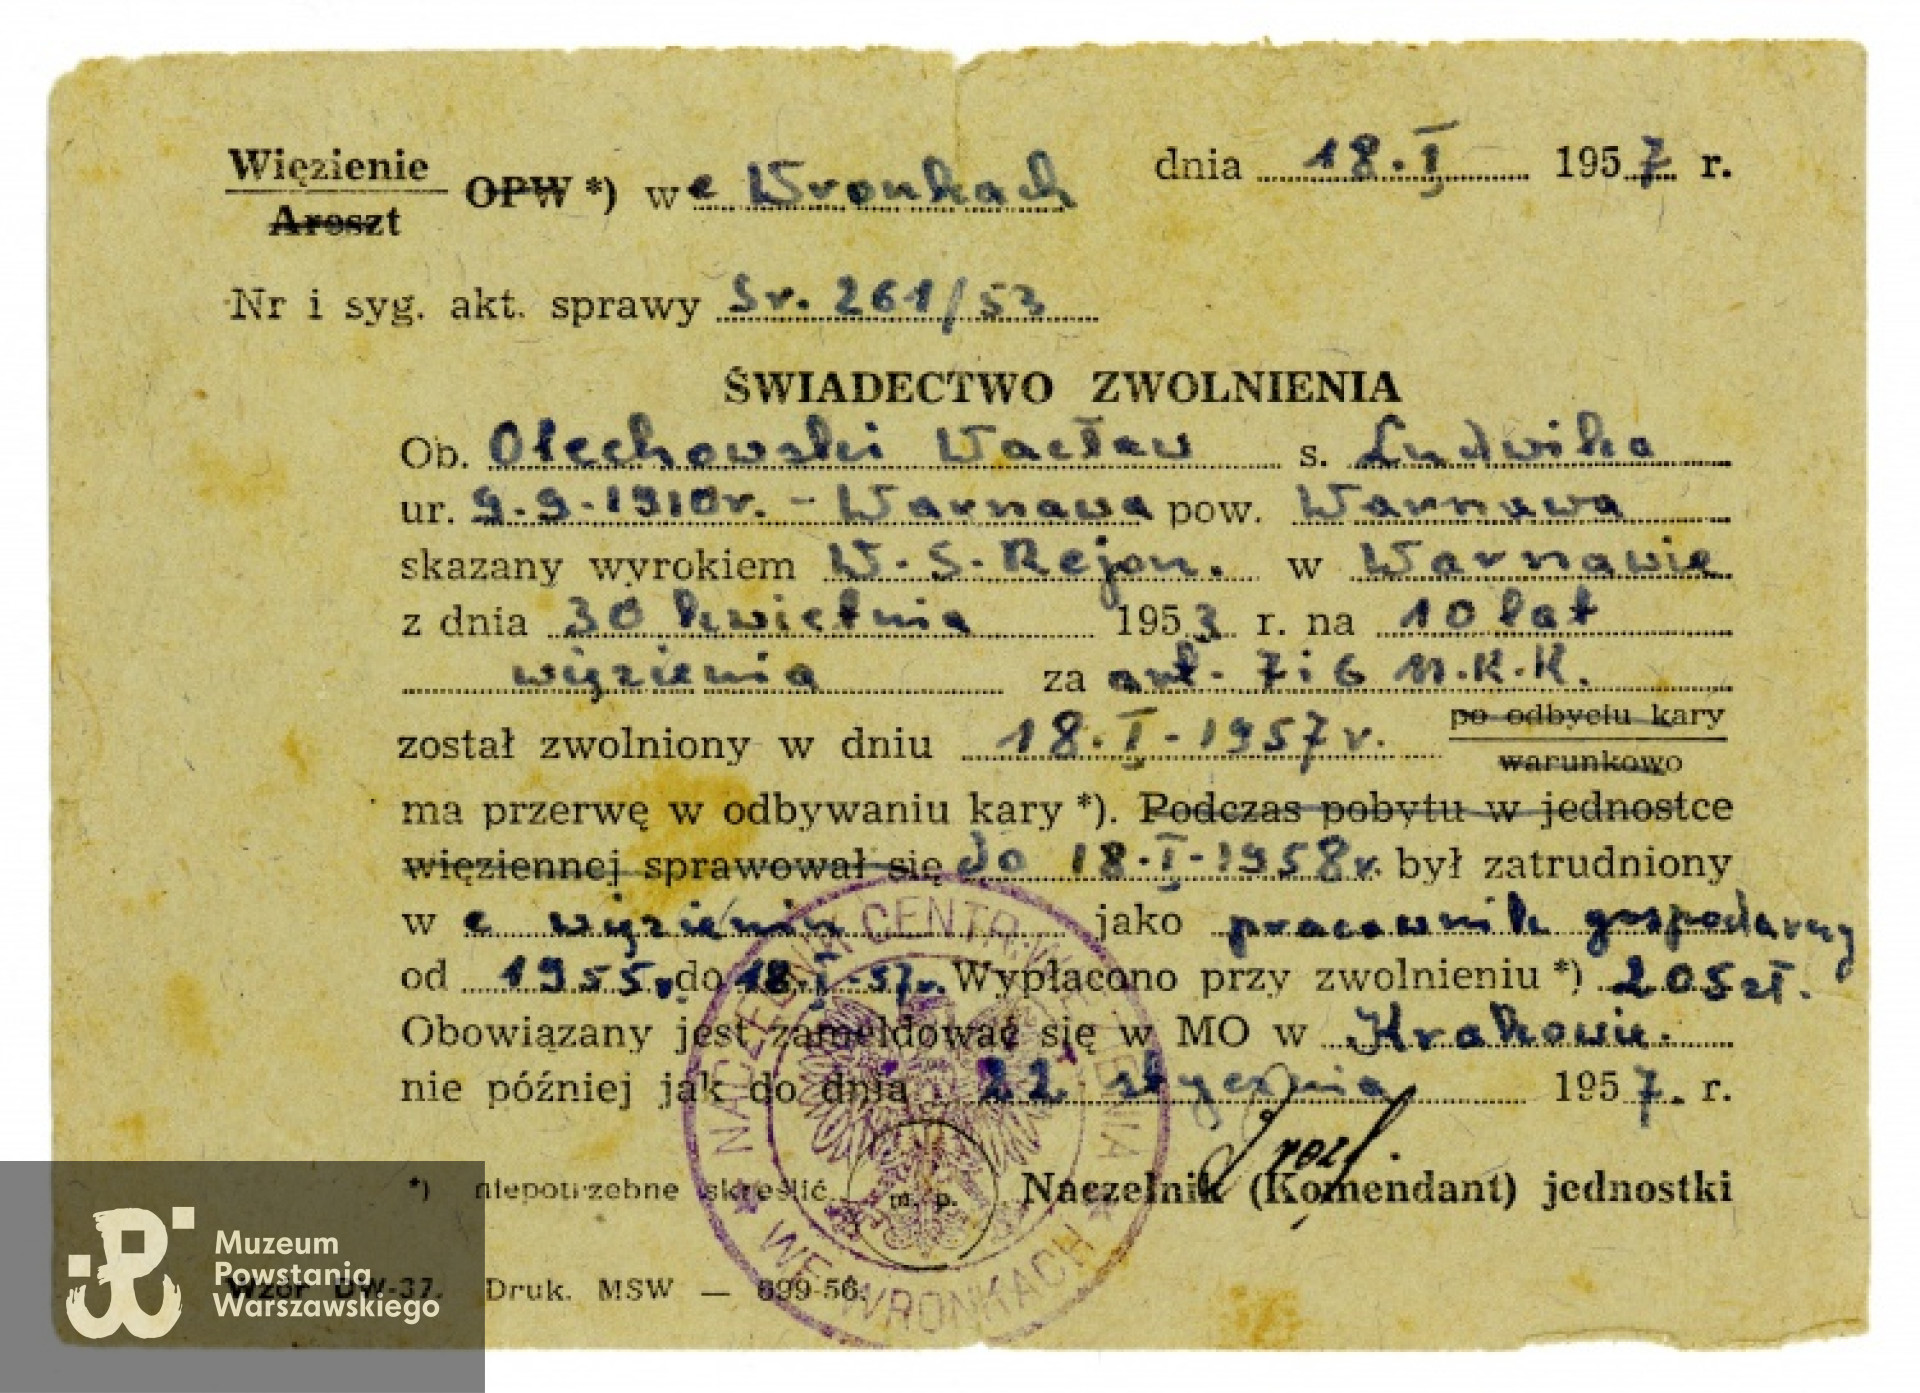 Więzienie
Areszt OPW *) we Wronkach dnia 18.I. 1957 r.
Nr i syg. akt. sprawy Sr. 261/53
ŚWIADECTWO ZWOLNIENIA
Ob. Olechowski Wacław s. Ludwika
ur. 9.9.1910r. - Warszawa pow. Warszawa
skazany wyrokiem W.S.Rejon. w Warszawie
z dnia 30 kwietnia 1953 r. na 10 lat
więzienia za art. 7 i 6 M.K.K.
został zwolniony w dniu 18.I-1957r. po odbyciu kary
warunkowo
ma przerwę w odbywaniu kary *). Podczas pobytu w jednostce
więziennej sprawował się do 18.I-1958r. był zatrudniony
w e więzieniu jako pracownik gospodarczy
od 1955r. do 18.I-57r. Wypłacono przy zwolnieniu *) 205 zł.
Obowiązany jest zameldować się w MO w Krakowie.
nie później jak do dnia 22 stycznia 1957. r.
*) niepotrzebne skreślić m. p. Naczelnik (Komendant) jednostki
Wzór DW-37. Druk. MSW — 699-56.
NACZELNIK CENTR. WIĘZIENIA
WE WRONKACH
Muzeum
Powstania
Warszawskiego